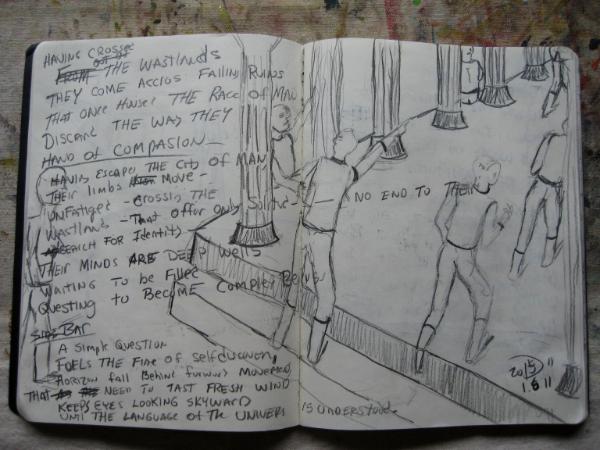 HAVING CROSSED
THE WASTLANDS
THEY COME ACCIOS FAILING RUINS
THAT ONCE HOUSED THE RACE OF MAN
DISCARD THE WAY THEY
HAND OF COMPASION
HAVING ESCAPED THE CITY OF MAN
THEIR LIMBS MOVE - NO END TO THEIR
UNFATIGED - CROSSING THE
WASTLAND - THAT OFFER ONLY
SEARCH FOR IDENTITY
THEIR MINDS ARE DEEP WELLS
WAITING TO BE FILLED
QUESTING TO BECOME COMPLEX BEINGS
SIDE BAR
A SIMPLE QUESTION
FUELS THE FIRE OF
HORIZON FALL BEHIND FORWARD MOVEMENT,
THAT NEED TO TAST FRESH WIND
KEEPS EYES LOOKING SKYWARD
UNTIL THE LANGUAGE OF THE UNIVERS IS UNDERSTOOD.
2015
1.8 11